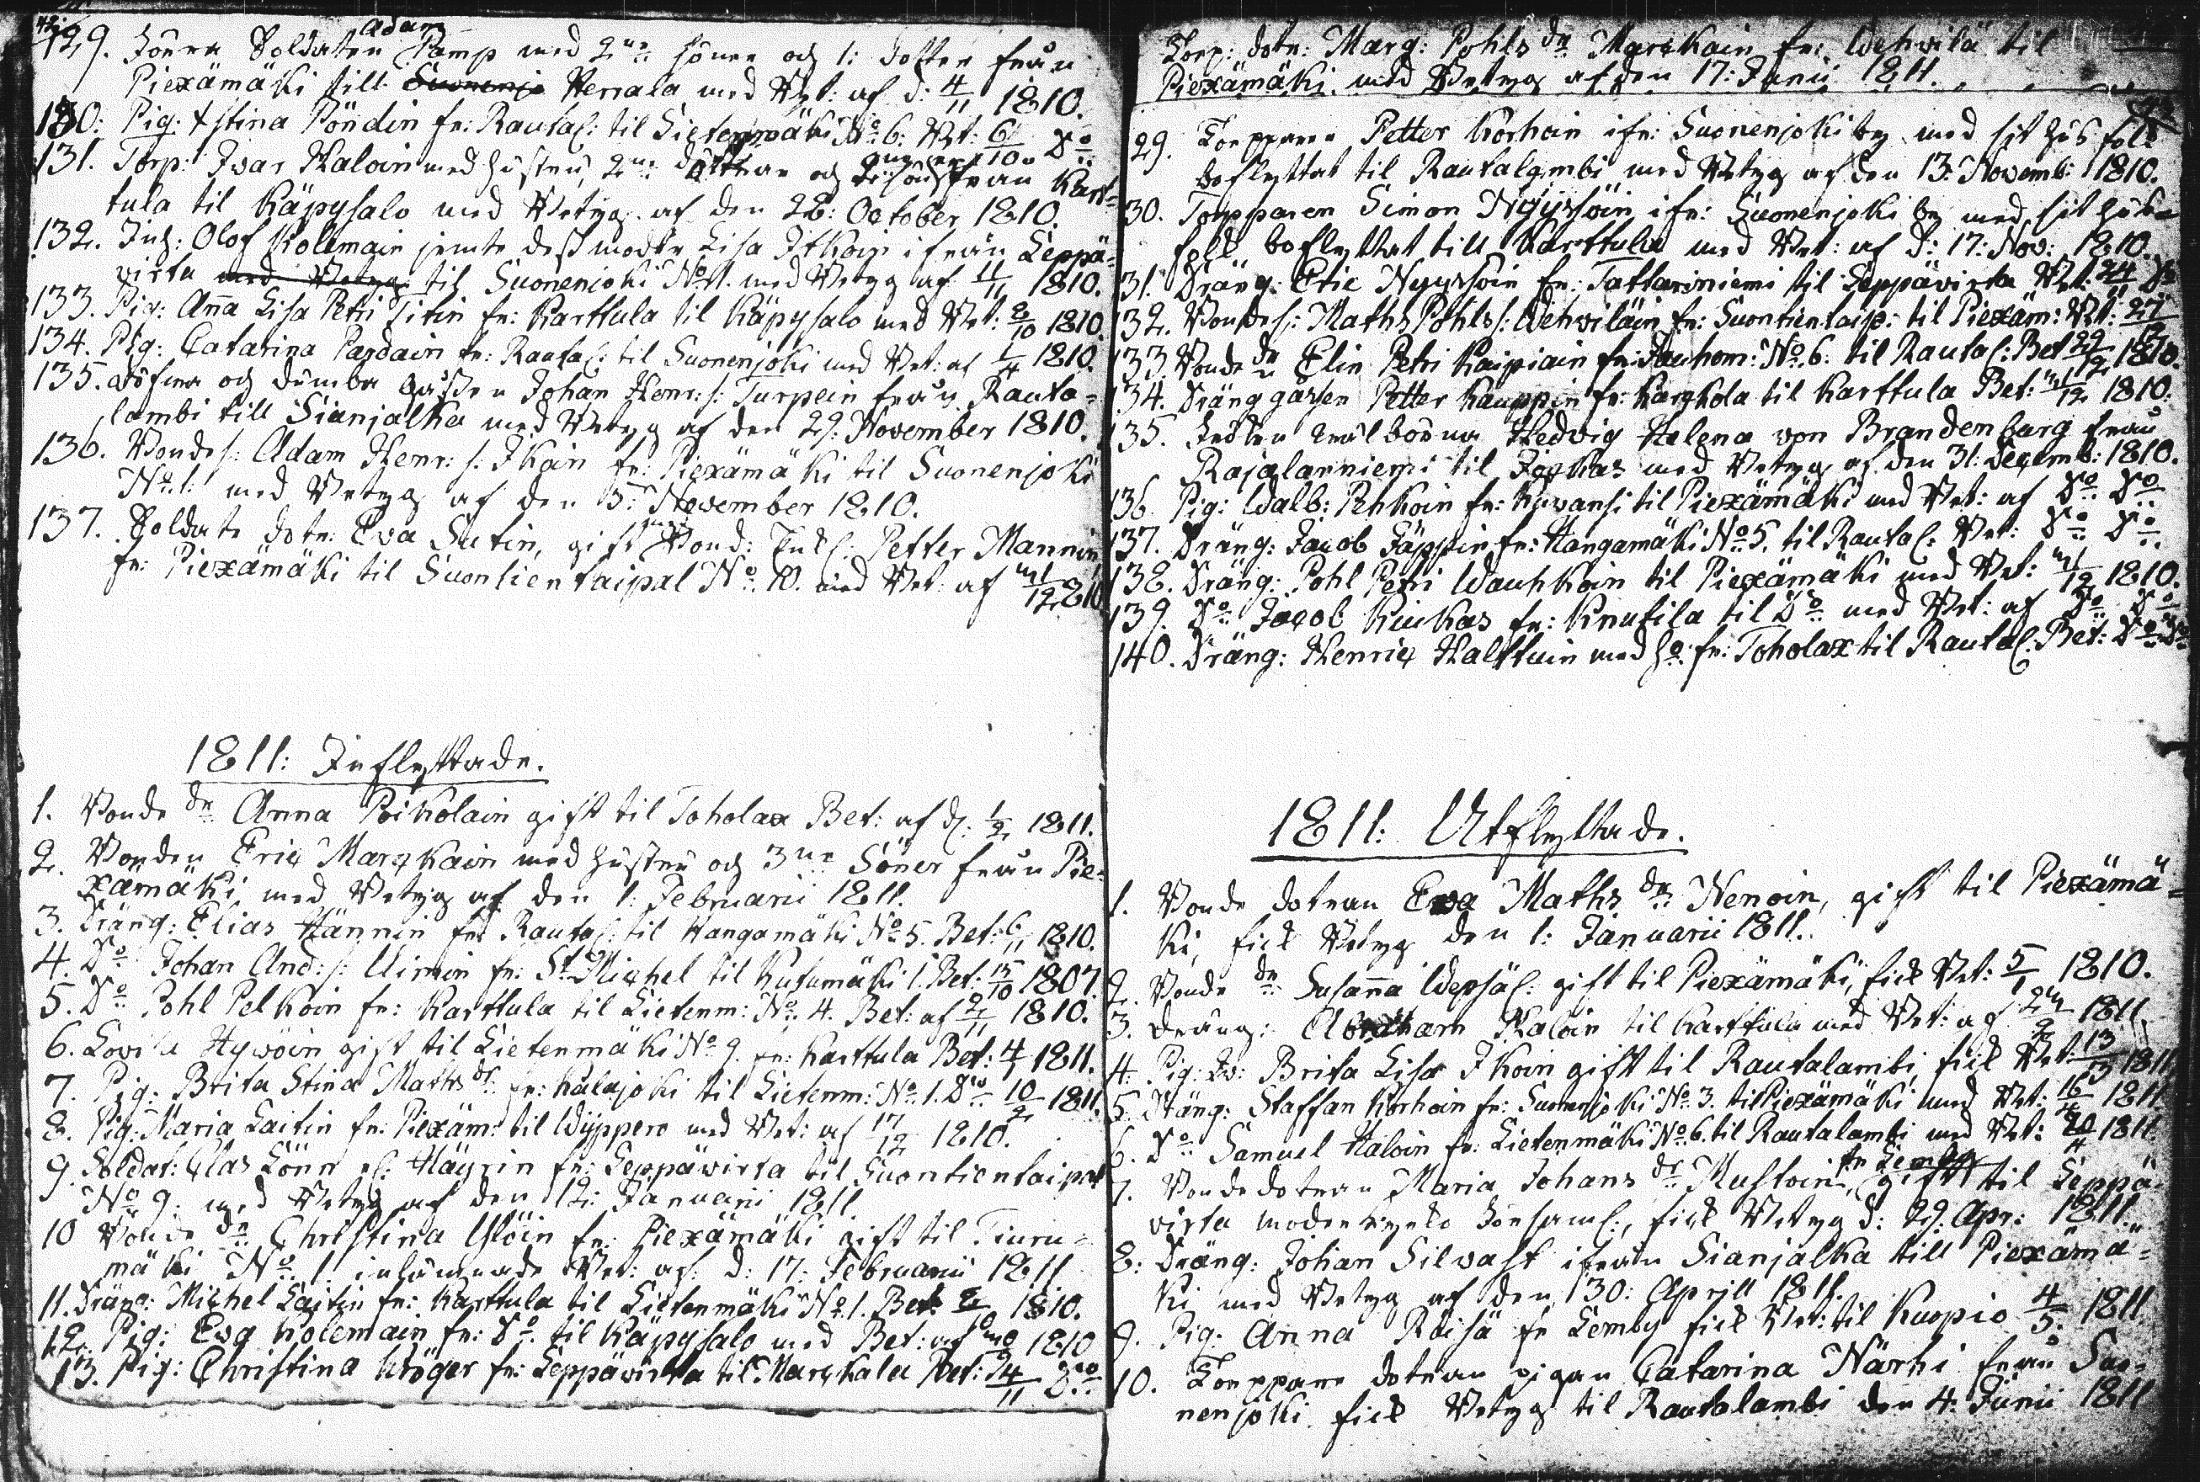 129. Soldaten Adam Pamp med 2ne Söner och 1: dotter från
Piexämäki till Suonenjo Herrala med Bet: af d: 4/11 1810.
130: Pig: Stina Pöndin fr: Rautal: til Lietenmäki No 6: Bet: 6/10 Do
131. Torp: Ivar Haloin med hustru, 2ne döttrar och från Kart=
tula til Käpysalo med Betyg af den 28: October 1810.
132. Inh: Olof Kolemain jemte dess moder Lisa Itkoin ifrån Leppä=
virta med Betyg til Suonenjoki No 1. med Betyg af 11/11 1810.
133. Pig: Anna Lisa Petri Titin fr: Karttula til Käpysalo med Bet: 8/10 1810.
134. Pig: Catarina Pardain fr: Rautal: til Suonenjoki med Bet: af 1/4 1810.
135. döfva och dumba gossen Johan Henr: s: Turpein från Rauta=
lambi till Sianjalka med Betyg af den 29: November 1810.
136. Bondes: Adam Henr: s: Ikoin fr: Piexämäki til Suonenjoki
No 1: med Betyg af den 3: November 1810.
137. Soldate dotr: Eva Sutin, gift Bond: Petter Mannin
fr: Piexämäki til Suontientaipal No 10. med Bet: af 12 1810
1811: Inflyttade.
1. Bonde dr Anna Poikolain gift til Toholax Bet: af d: 1/2 1811.
2. Bonden Eric Marckain med hustru och 3ne Söner från Pie=
xämäki, med Betyg af den 1: Februarii 1811.
3. Dräng: Elias Hännin fr: Rautal: til Hangamäki No 5. Bet: 6/11 1810.
4. Do Johan And: s: Uimin fr: St Michel til Kutumäki 1. Bet: 15/10 1807.
5. Do Pohl Pelkoin fr: Karttula til Lietenm: No 4. Bet: af 2/11 1810.
6. Lovisa Hyvöin gift til Lietenmäki No 9. fr: Karttula Bet: 4/1 1811.
7. Pig: Brita Stina Maths dr fr: Kalajoki til Lietenm: No 1. Do 10/2 1811.
8. Pig: Maria Laitin fr: Piexäm: til Wyppero med Bet: af 17/12 1810.
9. Soldat: Clas Lönn Häyrin fr: Leppäwirta til Suontientaipal
No 9: med Betyg af den 12: Januarii 1811.
10 Bonde dr Christina Ylöin fr: Piexämäki gift til Tiuru=
mäki No 1: inlämnade Bet: af d: 17: Februarii 1811
11. Dräng: Michel Laitin fr: Karttula til Lietenmäki No 1. Bet: 1810.
12. Pig: Eva Kolemain fr: Do til Käpysalo med Bet: af 1810
13. Pig: Christina Kröger fr: Leppäwirta til Marckala Bet: 24/11 Do
Torp: dotr: Marg: Pohls dr Marckain fr: Wehvilä til
Piexämäki med Betyg af den 17: Junii 1811.
29. Torpparen Petter Korhoin ifr: Suonenjoki by med sit husfolk
boflyttat til Rautalambi med Betyg af den 13: Novemb: 1810.
30. Torpparen Simon Nyyssöin ifr: Suonenjoki by med sit hus=
folk boflyttat till Karttula med Bet: af d: 17: Nov: 1810.
31. Dräng: Eric Nyyssöin fr: Tattariniemi til Leppävirta Bet: 24/11 Do
132. Bondes: Maths Pohls s: Wehviläin fr: Suontientaip: til Piexäm: Bet: 27
133. Bonde dr Elin Petri Kaipiain fr: Jauhom: No 6: til Rautal: Bet 22/12 1810.
134. Dräng gåssen Petter Kauppin fr: Karkkola til Karttula Bet: 12 1810:
135. välborna Hedvig Helena von Brandenburg från
Rajalanniemi til Jockas med Betyg af den 31: Decemb: 1810.
136. Pig: Walb: Pehkoin fr: Kuvansi til Piexämäki med Bet: af Do Do
137. Dräng: Jacob Jäppin fr: Hangamäki No 5. til Rautal: Bet: Do Do
138. Dräng: Pohl Petri Wauhkoin til Piexämäki med Bet: 12 1810.
139. Do Jacob Kiukas fr: Knutila til Do med Bet: af Do Do
140. Dräng: Henric Halttuin med ho: fr: Toholax til Rautal: Bet: Do Do
1811: Utflyttade.
1. Bonde dotran Eva Maths dr Nenoin, gift til Piexämä=
ki, fick Betyg den 1: Januarii 1811.
2. Bonde dr Susanna Wepsäl: gift til Piexämäki, fick Bet: 5/1 1810.
3. Dräng: Abraham Haloin til Karttula med Bet: af 1811
4. Pig: Brita Lisa Ikoin gift til Rautalambi, fick Bet: 13/3 1811
5. Dräng: Staffan Korhoin fr: Suonenjoki No 3. til Piexämäki med Bet: 16/4 1811
6. Do Samuel Haloin fr: Lietenmäki No 6. til Rautalambi med Bet: 20/4 1811
7. Bonde dotran Maria Johans dr Mustoin fr Lemby, gift til Leppä=
virta fick Betyg d: 29: Apr: 1811.
8: Dräng: Johan Silvast ifrån Sianjalka till Piexämä=
ki med Betyg af den 30: Aprill 1811.
9. Pig. Anna Räisä fr Lemby fick Bet: til Kuopio 4/5 1811
10. Torppare dotran pigan Catarina Närhi från Suo=
nenjoki fick Betyg til Rautalambi den 4: Junii 1811